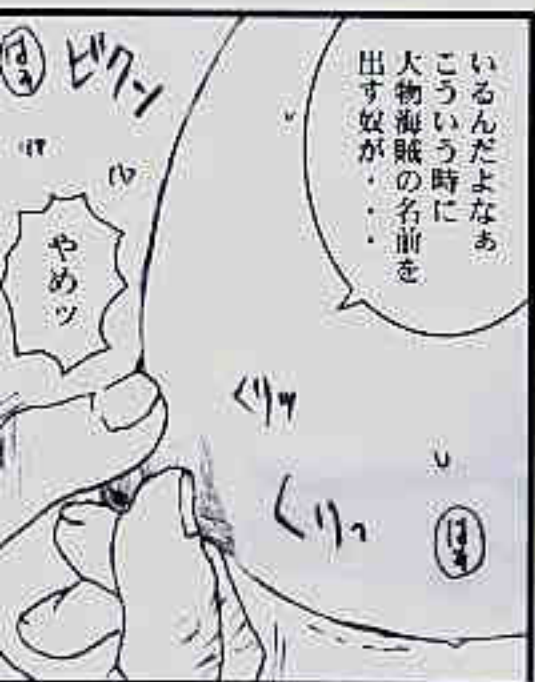 いるんだよなぁ
こういう時に
大物海賊の名前を
出す奴が・・・
ビクン
はぁ
やめッ
くりッ
くりっ
はぁ